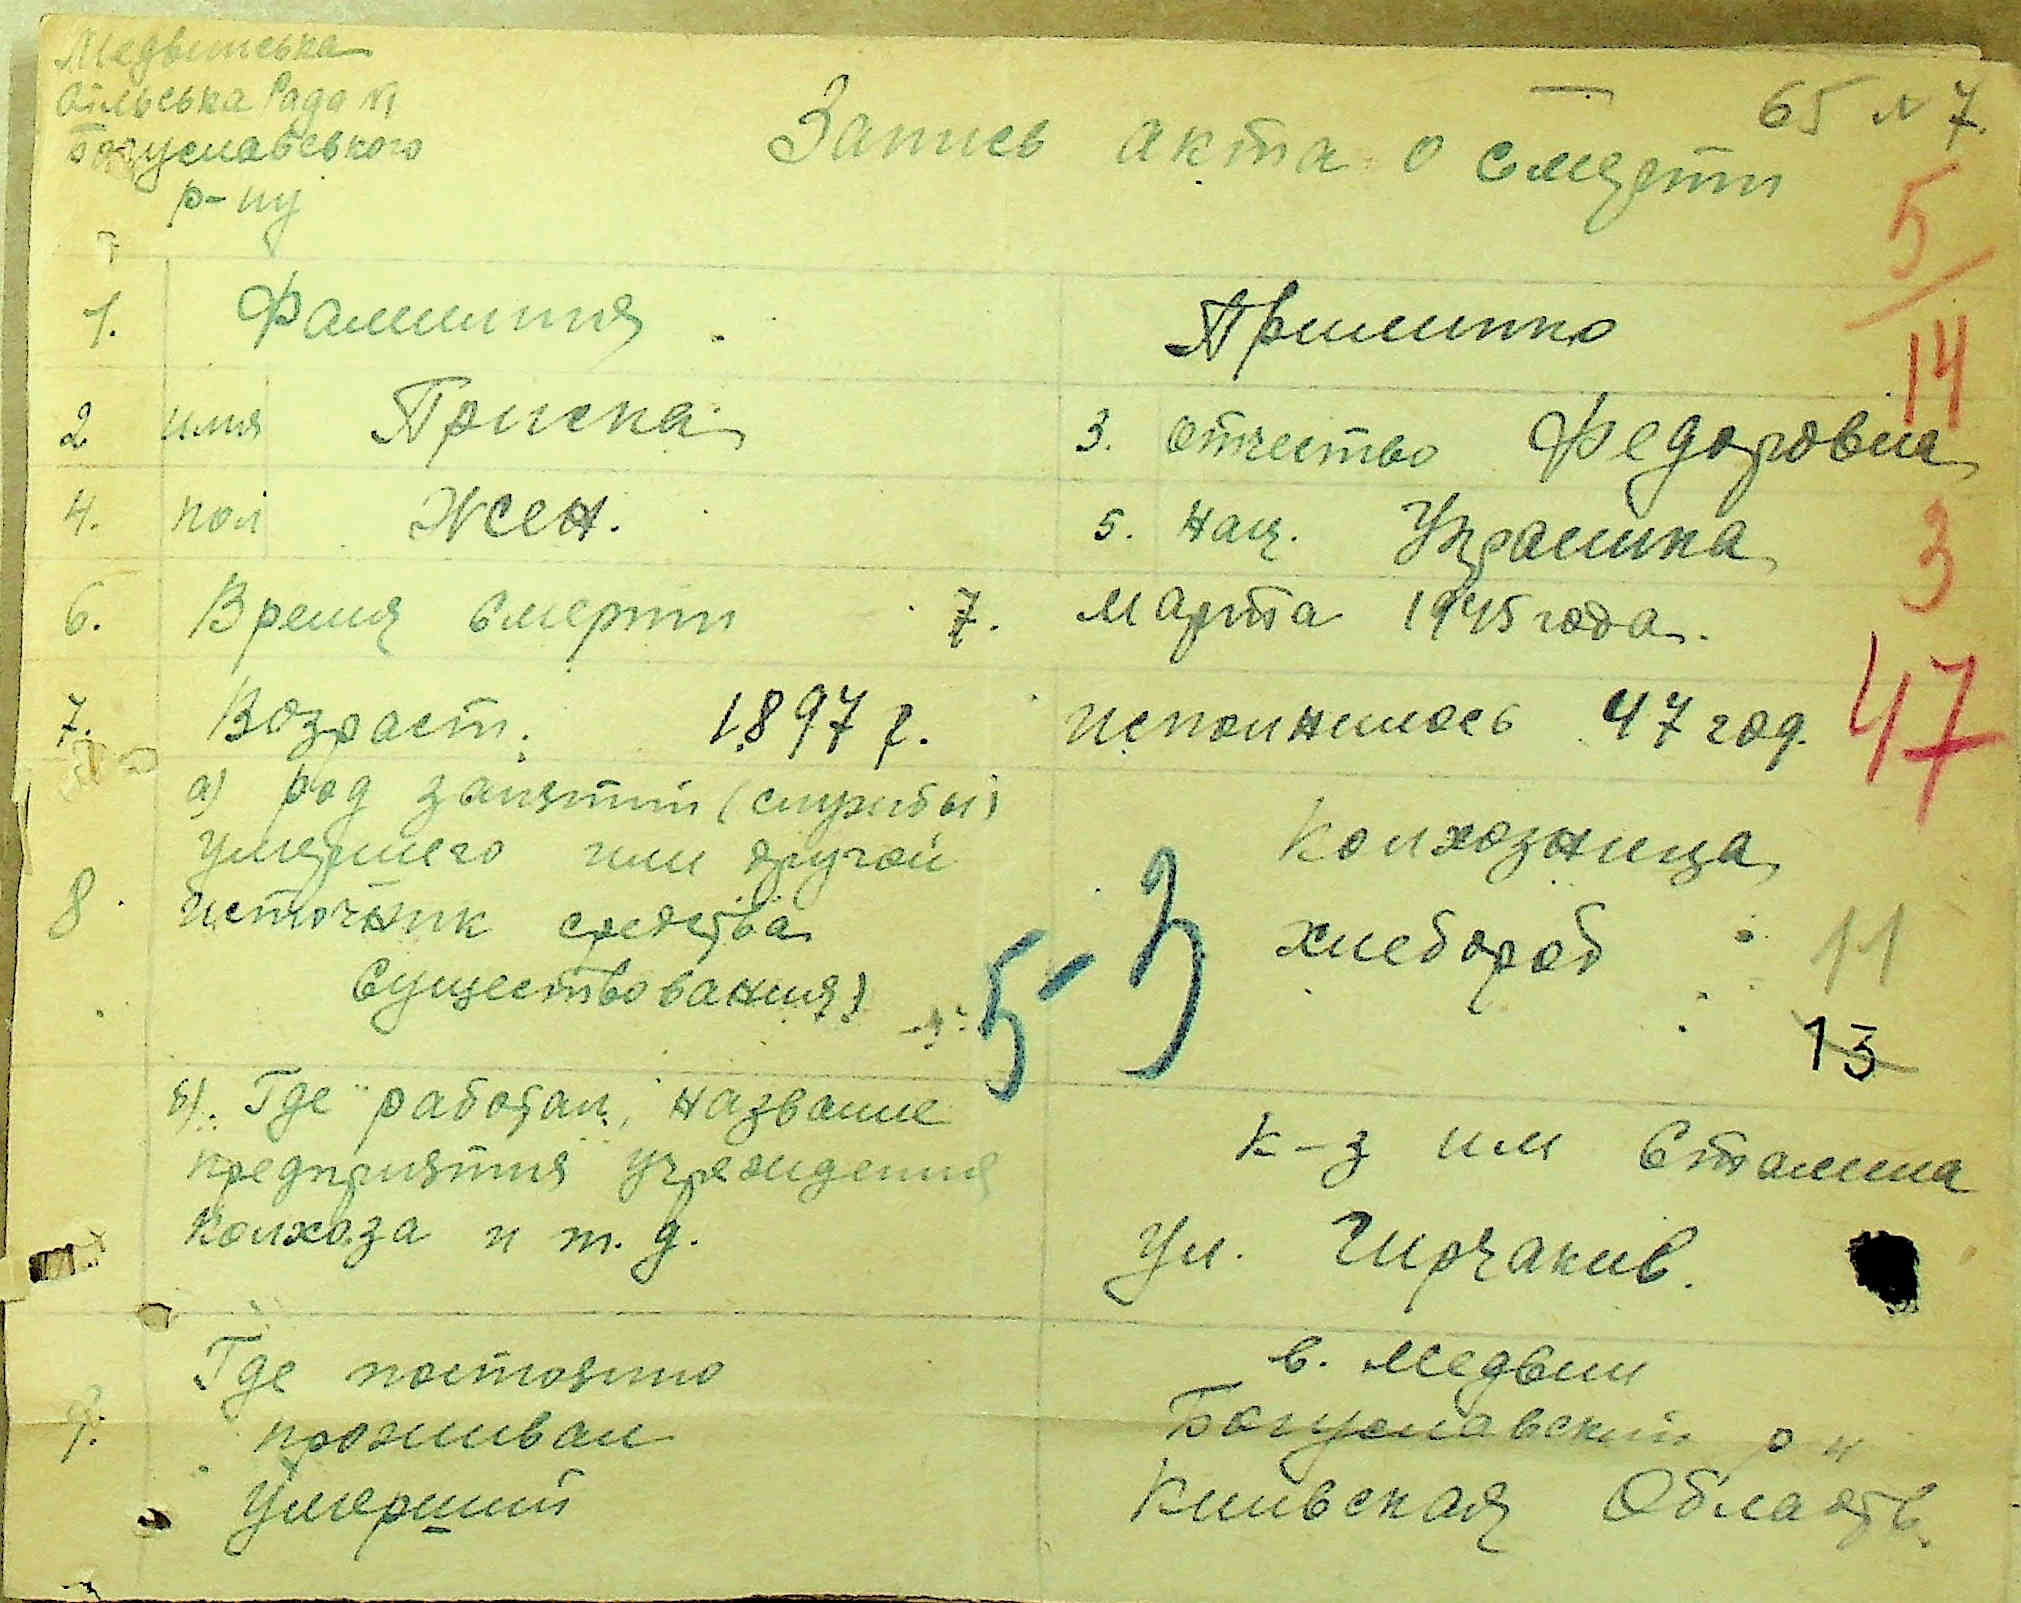 Медвинська
Сільська Рада №1
Богуславського
р-ну
65 № 7.
Запись акта о смерти
5/14
1. Фамилия Примипко
2 имя Приска 3. Отчество Федоровна
4. пол Жен. 5. нац. Украинка
3
6. Время смерти 7. Марта 1945 года.
7. Возраст. 1897 г. исполнилось 47 год.
47
8. а) род занятий (службы)
умершего или другой
источник средства
существования)
Колхозница
хлебороб
5-3
11
13
б). Где работал, название
предприятия учреждения
колхоза и т. д.
к-з им Сталина
Ул. Гирчакив.
9. Где постоянно
проживал
умерший
с. Медвин
Богуславский р н
Киивская Область